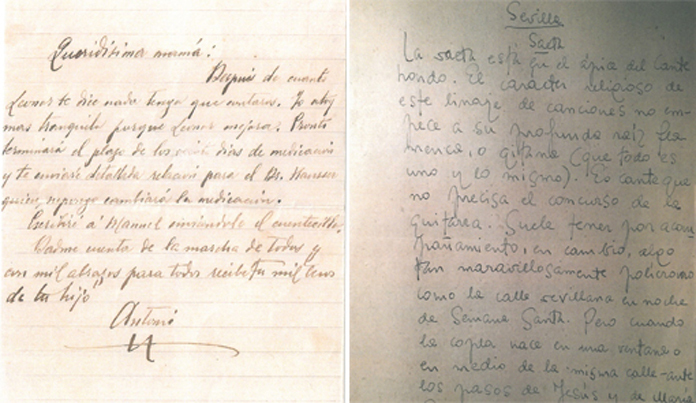 Queridísima mamá:
Después de cuanto
Leonor te dice nada tengo que contaros. Yo estoy
mas tranquilo porque Leonor mejora. Pronto
terminará el plazo de los veinte días de medicación
y te enviaré detallada relación para el Dr.
quien supongo cambiará la medicación.
Escribiré á Manuel enviándole el cuentecillo.
Dadme cuenta de la marcha de todos y
con mil abrazos para todos recibe tu mil
de tu hijo
Antonio
Sevilla
Saeta
La saeta está en el del Cante
hondo. El caracter religioso de
este linaje de canciones no em-
pece a su profunda raiz fla-
menca, o gitana (que todo es
uno y lo mismo). Es cante que
no precisa el concurso de la
guitarra. Suele tener por acom-
pañamiento, en cambio, algo
tan maravillosamente policromo
como la calle sevillana en noche
de Semana Santa. Pero cuando
la copla nace en una ventana o
en medio de la misma calle-ante
los pasos de Jesús y de María